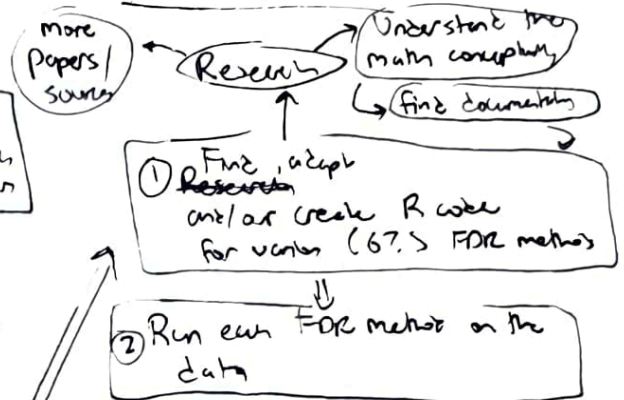 more
Papers/
sources
Research
Understand the
math conceptually
find documentation
① Find, adapt
Research
and/or create R code
for various (6?) FDR methods
② Run each FDR method on the
data